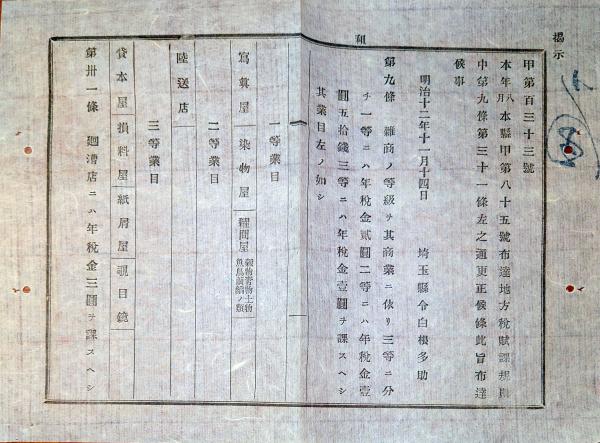 揭示
甲第百三十三號
本年八月本縣甲第八十五號布達地方稅賦課規則
中第九條第三十一條左之通更正候條此旨布達
候事
明治十二年十一月十四日
埼玉縣令白根多助
第九條 雜商ノ等級ヲ其商業ニ依リ三等ニ分
チ一等ニハ年稅金貳圓二等ニハ年稅金壹
圓五拾錢三等ニハ年稅金壹圓ヲ課スヘシ
其業目左ノ如シ
一等業目
寫眞屋 染物屋 糶問屋 穀物靑物土物魚鳥 ノ類
二等業目
陸送店
三等業目
貸本屋 損料屋 紙屑屋 覗目鏡
第卅一條 廻漕店ニハ年稅金三圓ヲ課スヘシ